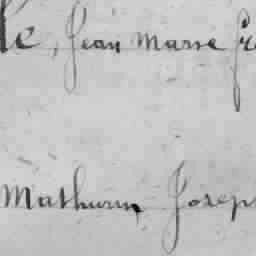 Ke, Jean Marie Fr
Mathurin Josep